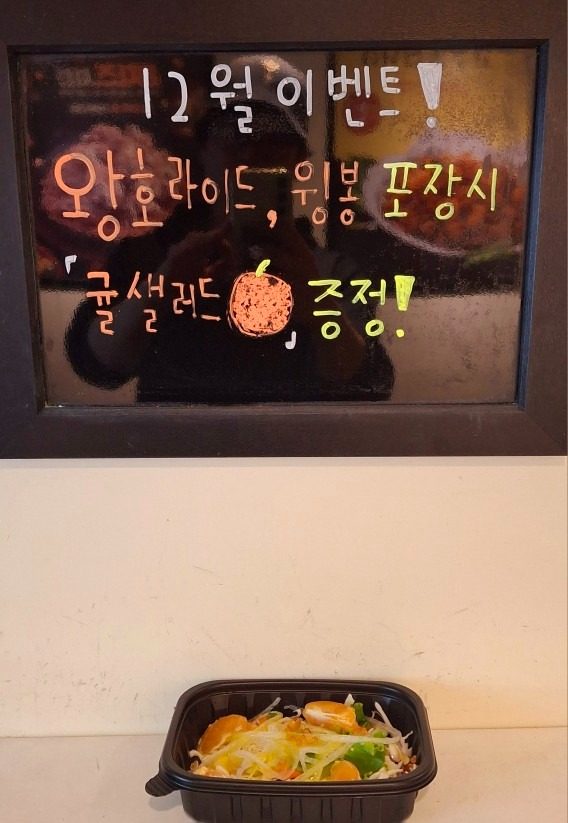 12월 이벤트!
왕호라이드, 윙봉 포장시
「귤샐러드」 증정!